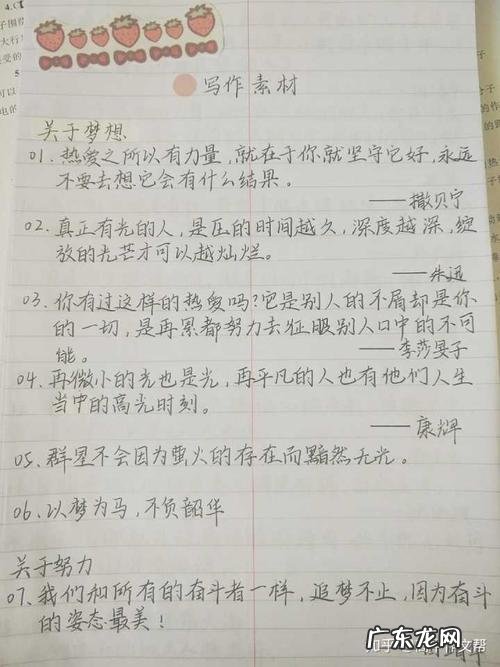 写作素材
关于梦想
01. 热爱之所以有力量，就在于你就坚守它好，永远
不要去想它会有什么结果。
——撒贝宁
02. 真正有光的人，是压的时间越久，深度越深，绽
放的光芒才可以越灿烂。
——朱迅
03. 你有过这样的热爱吗？它是别人的不屑却是你
的一切，是再累都努力去征服别人口中的不可
能。
——李莎旻子
04. 再微小的光也是光，再平凡的人也有他们人生
当中的高光时刻。
——康辉
05. 群星不会因为萤火的存在而黯然无光。
06. 以梦为马，不负韶华
关于努力
07. 我们和所有的奋斗者一样，追梦不止，因为奋斗
的姿态最美！
知乎
作文帮
广东龙网